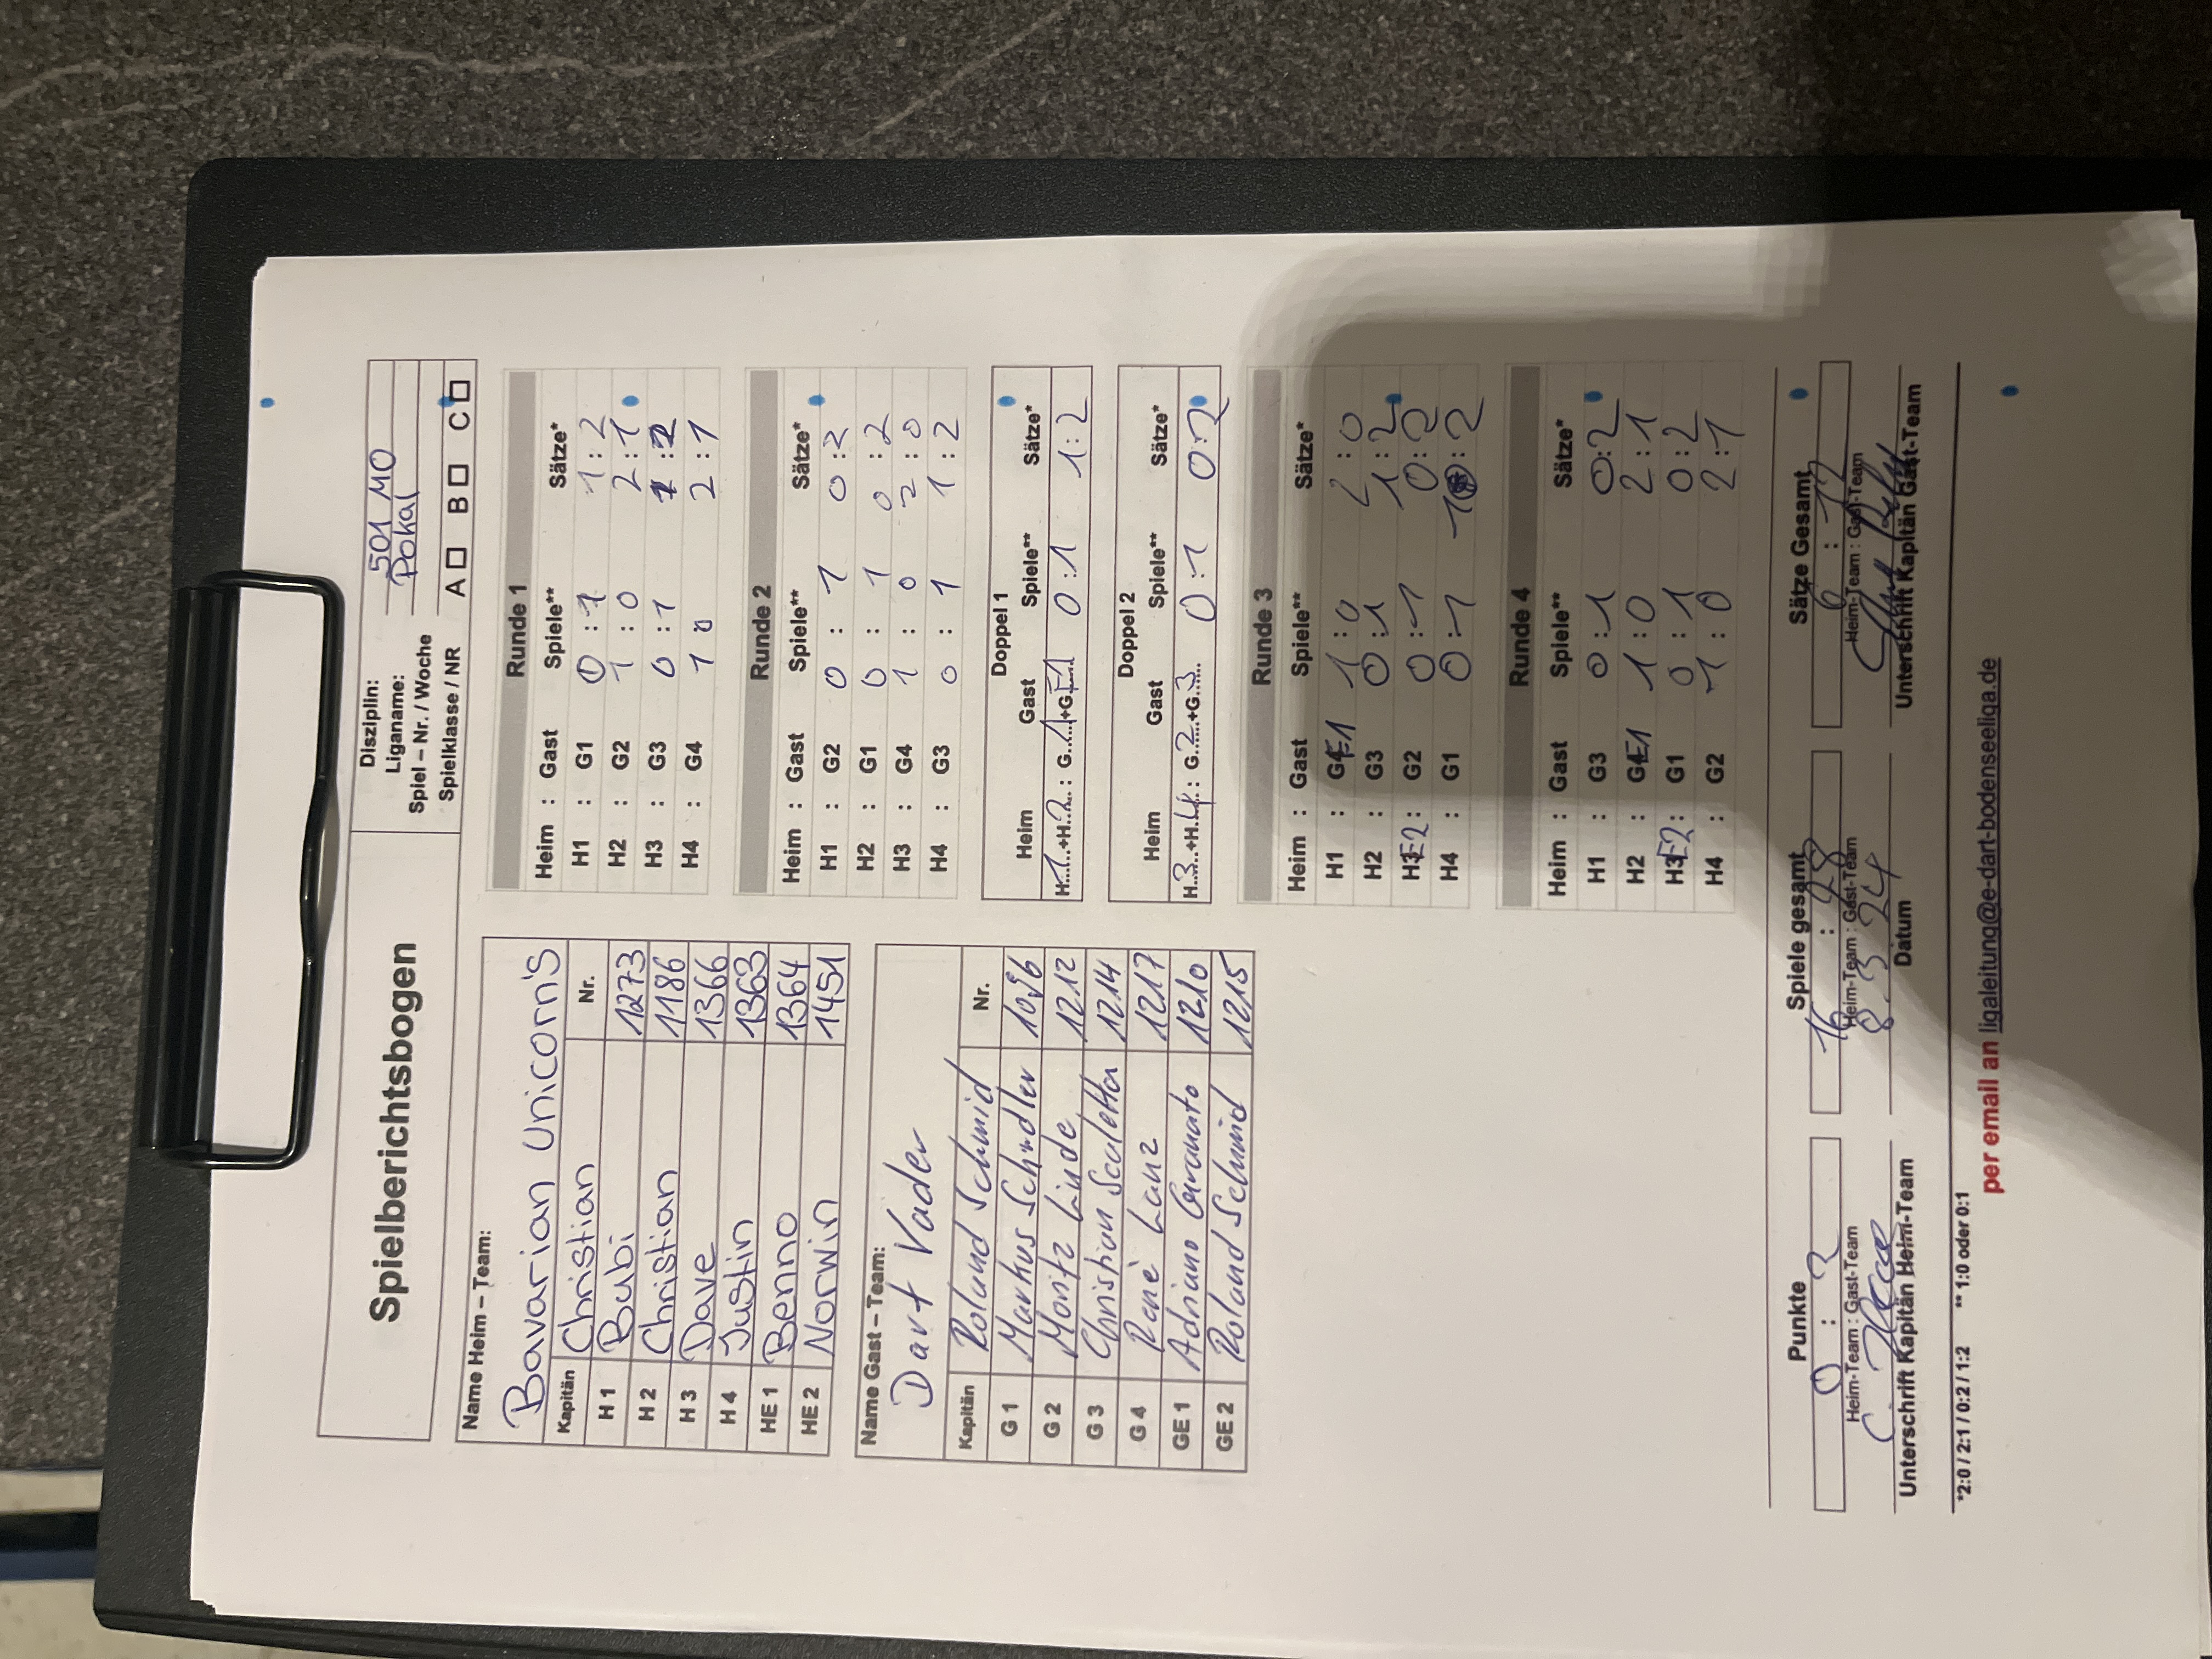 Spielberichtsbogen
Disziplin: 501 MO
Liganame: Pokal
Spiel – Nr. / Woche
Spielklasse / NR A ☐ B ☐ C ☐
Name Heim – Team:
Bavarian Unicorn's
Kapitän Christian Nr.
H 1 Bubi 1273
H 2 Christian 1186
H 3 Dave 1366
H 4 Justin 1363
HE 1 Benno 1364
HE 2 Norwin 1451
Name Gast – Team:
Dart Vader
Kapitän Roland Schmid Nr.
G 1 Markus Schindler 1096
G 2 Moritz Linde 1212
G 3 Christian Scaletta 1214
G 4 Renè Lanz 1217
GE 1 Adriano 1210
GE 2 Roland Schmid 1215
Runde 1
Heim : Gast Spiele** Sätze*
H1 : G1 0 : 1 1 : 2
H2 : G2 1 : 0 2 : 1
H3 : G3 0 : 1 1 : 2
H4 : G4 1 : 0 2 : 1
Runde 2
Heim : Gast Spiele** Sätze*
H1 : G2 0 : 1 0 : 2
H2 : G1 0 : 1 0 : 2
H3 : G4 1 : 0 2 : 0
H4 : G3 0 : 1 1 : 2
Doppel 1
Heim Gast Spiele** Sätze*
H..1..+H..2.. : G..1..+G..E1 0 : 1 1 : 2
Doppel 2
Heim Gast Spiele** Sätze*
H..3..+H..4.. : G..2..+G..3.. 0 : 1 0 : 2
Runde 3
Heim : Gast Spiele** Sätze*
H1 : GE1 1 : 0 2 : 0
H2 : G3 0 : 1 1 : 2
HE2 : G2 0 : 1 0 : 2
H4 : G1 0 : 1 1 : 2
Runde 4
Heim : Gast Spiele** Sätze*
H1 : G3 0 : 1 0 : 2
H2 : GE1 1 : 0 2 : 1
HE2 : G1 0 : 1 0 : 2
H4 : G2 1 : 0 2 : 1
Punkte Spiele gesamt Sätze Gesamt
0 : 2 16 : 28 6 : 12
Heim-Team : Gast-Team Heim-Team : Gast-Team Heim-Team : Gast-Team
8. 3 24
Unterschrift Kapitän Heim-Team Datum Unterschrift Kapitän Gast-Team
*2:0 / 2:1 / 0:2 / 1:2 ** 1:0 oder 0:1
per email an ligaleitung@e-dart-bodenseeliga.de